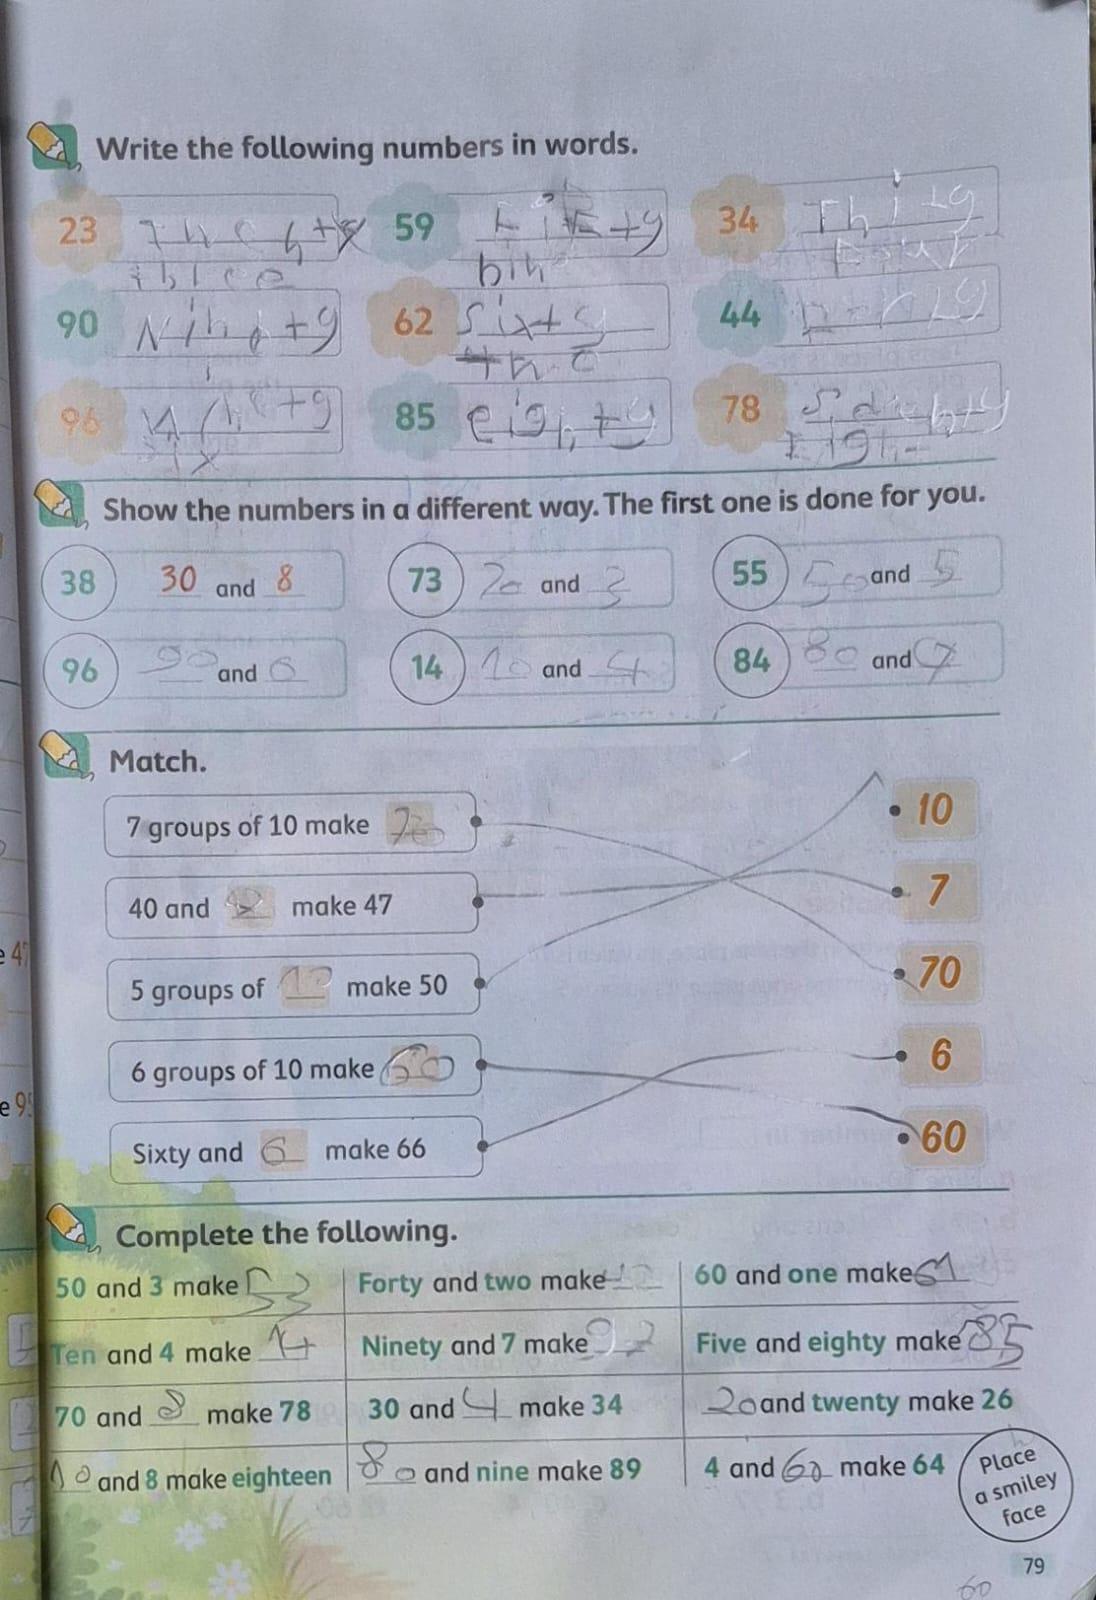 Write the following numbers in words.
23 59 34
90 Ninety 62 Sixty 44
96 85 eighty 78
Show the numbers in a different way. The first one is done for you.
38 30 and 8 73 70 and 3 55 50 and 5
96 90 and 6 14 10 and 4 84 80 and
Match.
7 groups of 10 make 70 10
40 and make 47 7
5 groups of make 50 70
6 groups of 10 make 60 6
Sixty and 6 make 66 60
Complete the following.
50 and 3 make 53 Forty and two make 60 and one make 61
Ten and 4 make 14 Ninety and 7 make Five and eighty make 85
70 and 8 make 78 30 and 4 make 34 20 and twenty make 26
10 and 8 make eighteen 80 and nine make 89 4 and 60 make 64
Place
a smiley
face
79
60